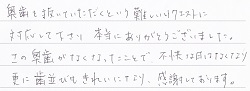 奥歯を抜いていただくという難しいリクエストに
対応して下さり 本当にありがとうございました。
この奥歯がなくなったことで 不快な日はなくなり
更に歯並びもきれいになり、感謝しております。